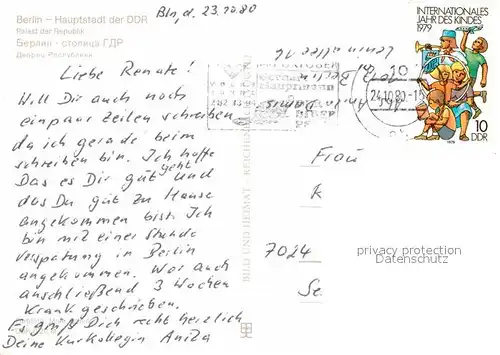 Berlin - Hauptstadt der DDR
Palast der Republik
Берлин - столица ГДР
Дворец Республики
Bln, d. 23.10.80
Liebe Renate!
Will Dir auch noch
ein paar Zeilen schreiben
da ich gerade beim
schreiben bin. Ich hoffe
Das es Dir gut geht und
das Du gut zu Hause
angekommen bist. Ich
bin mit einer Stunde
verspätung in Berlin
angekommen. War auch
anschließend 3 Wochen
Krank geschrieben.
Es grüßt Dich recht herzlich
Deine Kurkollegin Anita
BILD UND HEIMAT REICHENBACH
INTERNATIONALES
JAHR DES KINDES
1979
10
DDR
24.10.80
Leninallee 76
Berlin
Frau
K
7024
privacy protection
Datenschutz